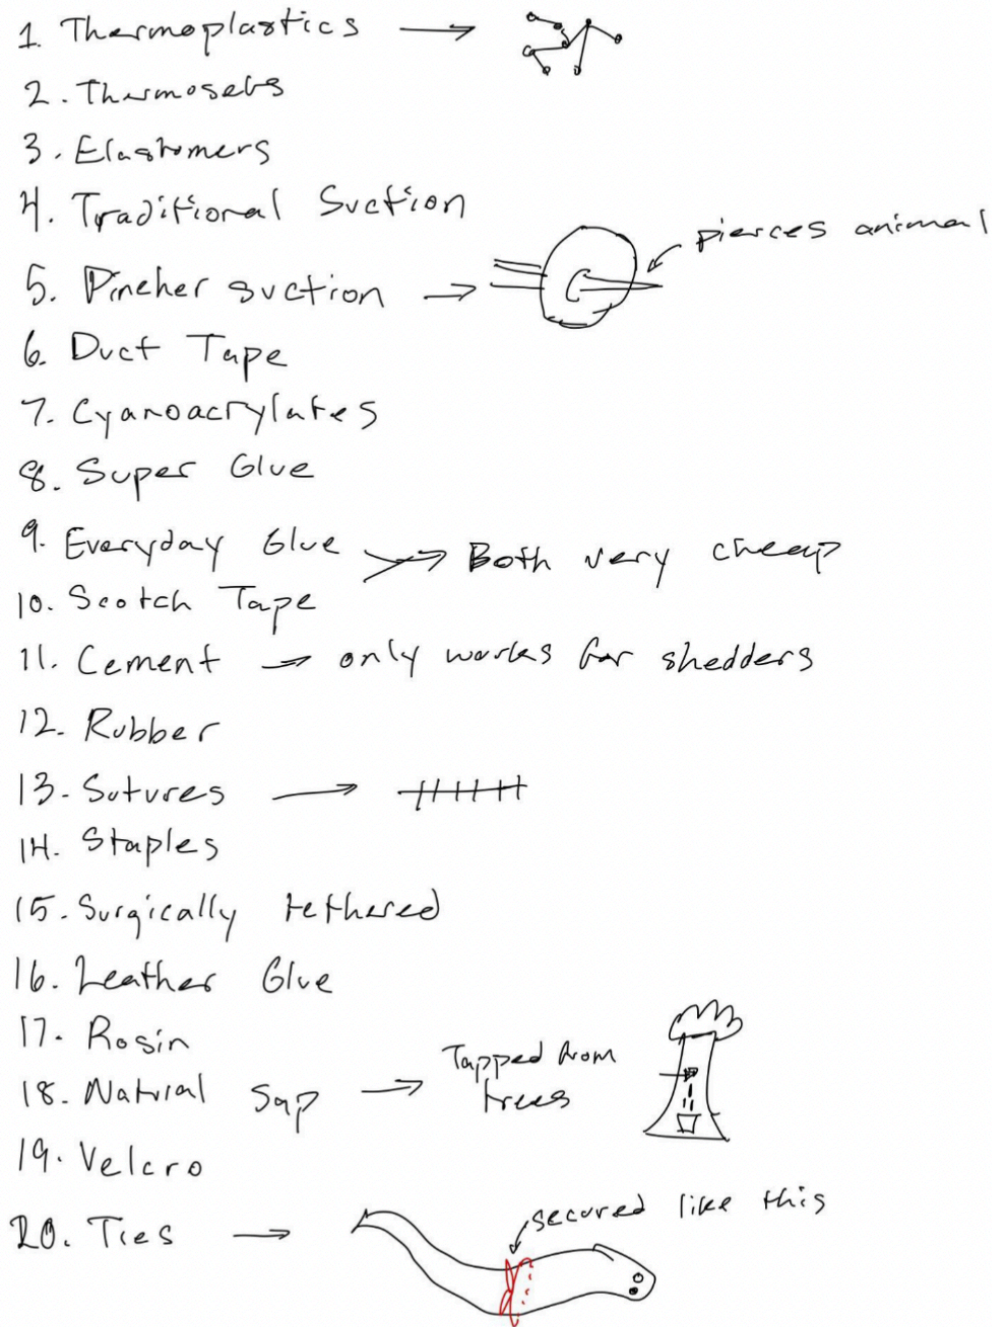 1. Thermoplastics
2. Thermosets
3. Elastomers
4. Traditional Suction
5. Pincher suction → pierces animal
6. Duct Tape
7. Cyanoacrylates
8. Super Glue
9. Everyday Glue → Both very cheap
10. Scotch Tape
11. Cement → only works for shedders
12. Rubber
13. Sutures
14. Staples
15. Surgically tethered
16. Leather Glue
17. Rosin
18. Natural Sap → Tapped from
trees
19. Velcro
20. Ties → secured like this